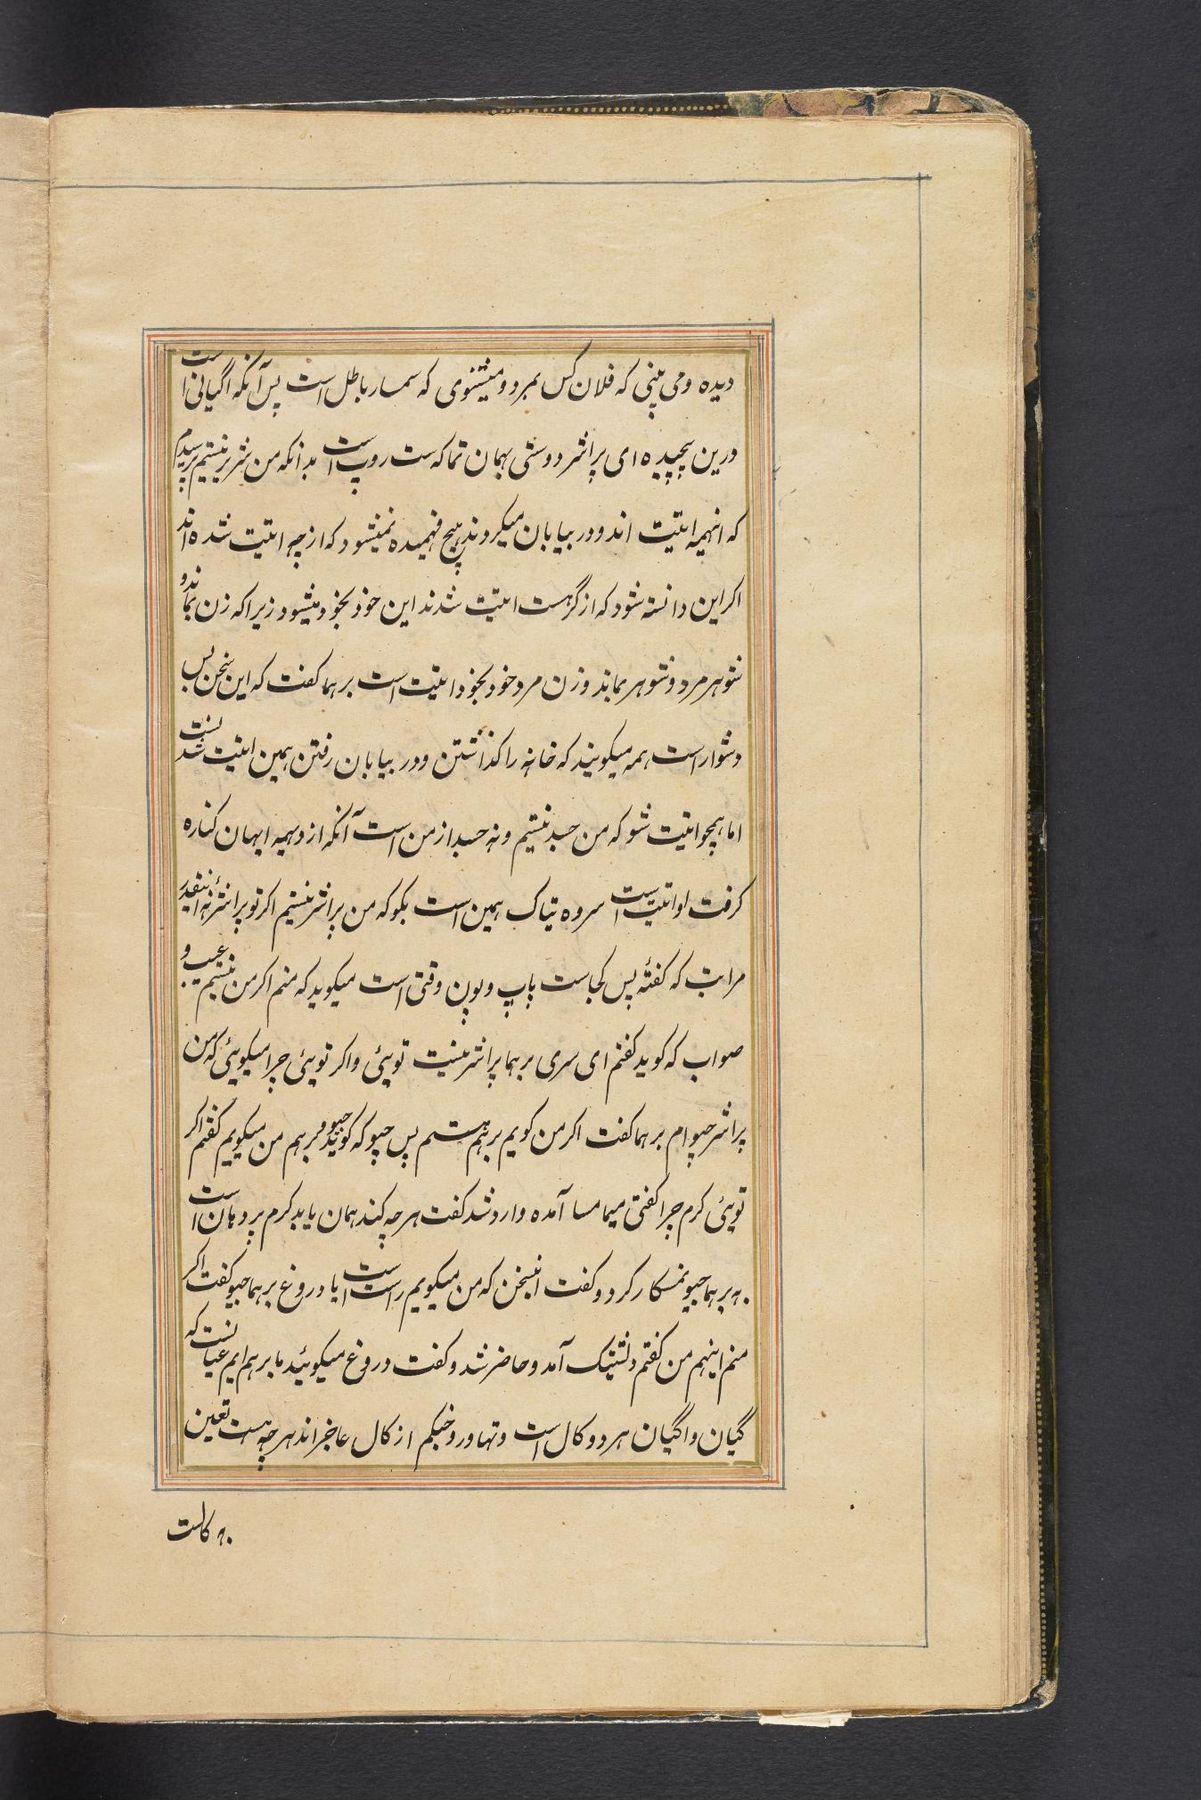 دیده و می بینی که فلان کس بمرد و میشنوی که سمسار باطل است پس آنکه اگیانی است
درین پیچیده ای پراشر دوستی بهمان تماکه ست روپ است بدانکه من شریر نیستم پرسیدم
که اینهمه اتیت اند و در بیابان میکردند هیچ فهمیده نمیشود که از چه اتیت شده اند
اکر این دانسته شود که از گرهست اتیت شدند این خود بخود میشود زیرا که زن بماند و
شوهر مرد و شوهر بماند و زن مرد خود بخود اتیت است برهما کفت که این سخن بس
دشوار است همه میکویند که خانه را کذاشتن و در بیابان رفتن همین اتیت شدنست
اما همچو اتیت شو که من جسد نیستم و نه جسد از من است آنکه از دیهه ابهمان کناره
کرفت او اتیت است سروه تیاک همین است بکو که من پراشر نیستم اکر تو پراشر نهٔ اینقدر
مراتب که کفتهٔ پس کجاست پاپ و پون وقتی است میکوید که منم اکر من نیستم عیب و
صواب که کوید کفتم ای سری برهما پراشر نیست توپئی و اکر توپئی چرا میکوپئی که من
پراشر جیو ام برهما کفت اکر من کویم برهم هستم پس جیو که کوید جیو و برهم من میکویم کفتم اکر
توپئی کرم چرا کفتی میمامسا آمده وارد شد کفت هر چه کند همان یابد کرم پردهان است
به برهما جیو نمسکار کرد و کفت اینسخن که من میکویم راست است یا دروغ برهما جیو کفت اکر
منم اینهم من کفتم دشتیک آمد و حاضر شد و کفت دروغ میکوئید ما برهم ایم عیانست که
گیان و اگیان هر دو کال است و تنها ور وخبکم از کال عاجز اند هر چه هست تعین
به کالست